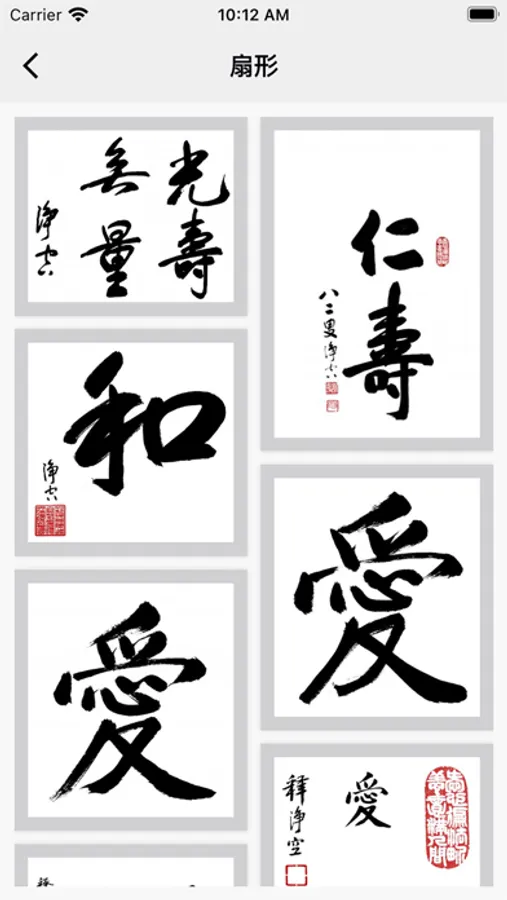 Carrier 10:12 AM
扇形
光壽
無量
淨空
仁壽
八二叟淨空
和
淨空
愛
愛
愛
釋淨空